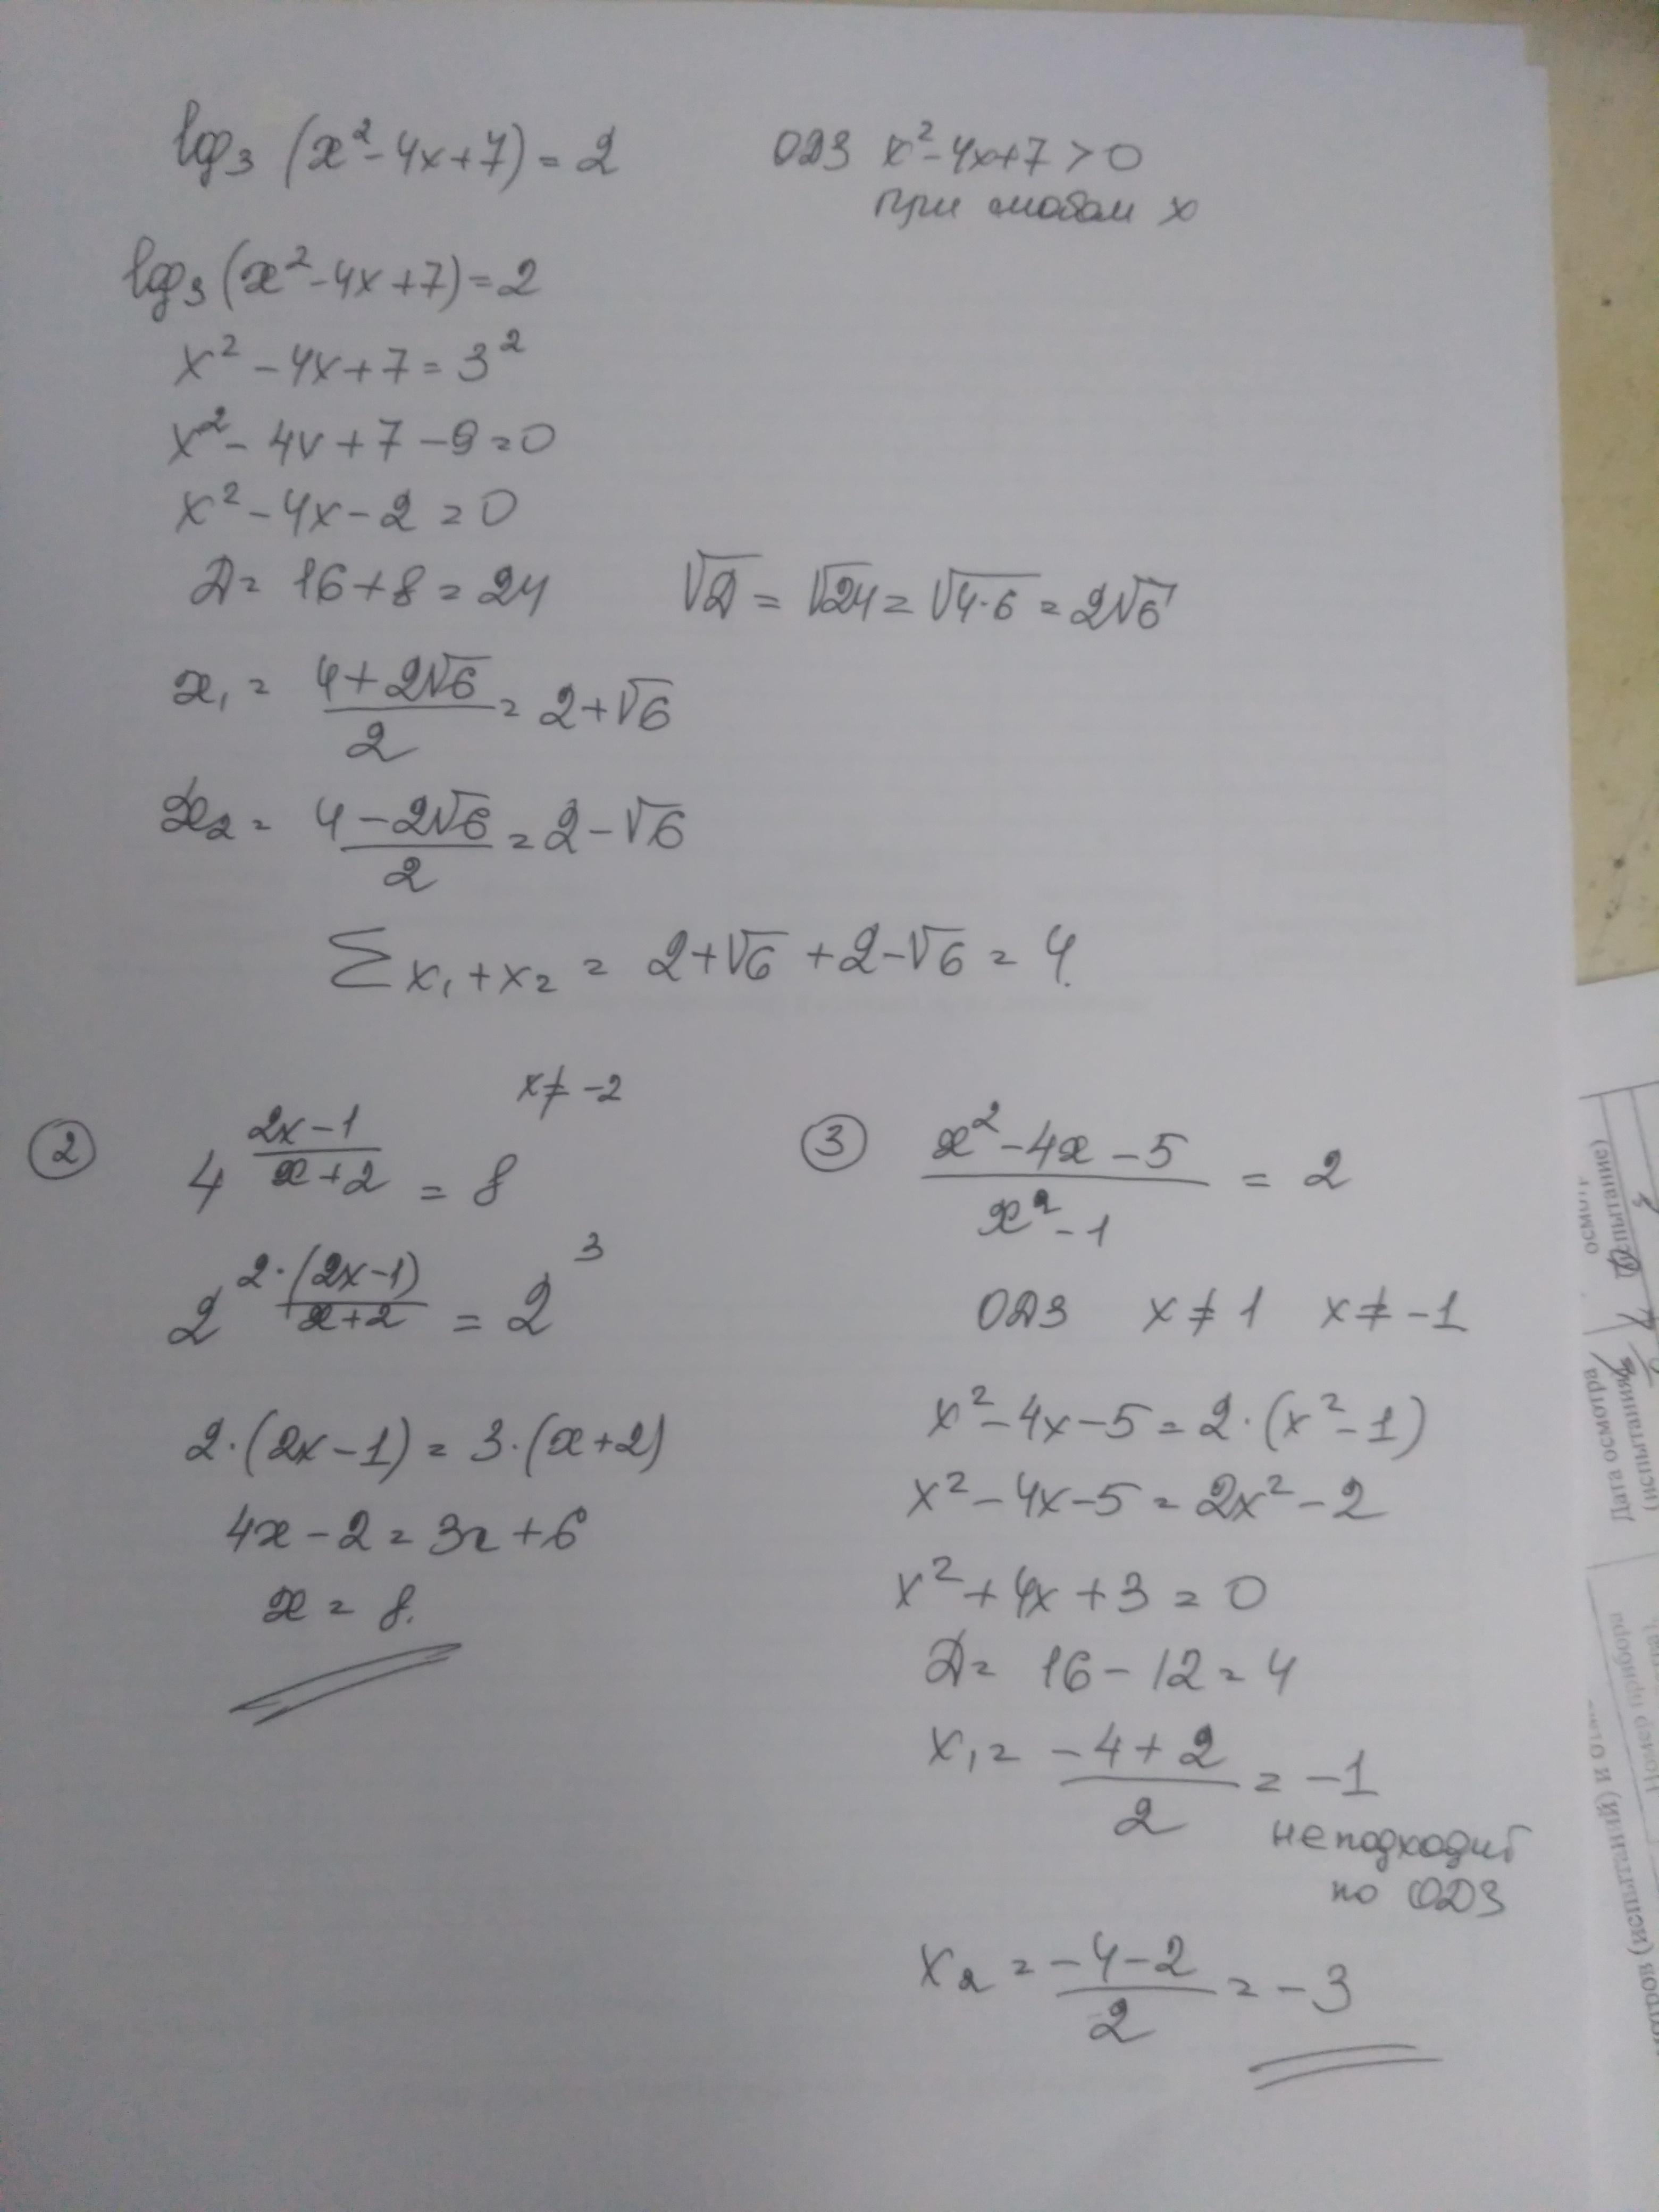 log₃ (x² - 4x + 7) = 2
ОДЗ x² - 4x + 7 > 0
при любом x
log₃ (x² - 4x + 7) = 2
x² - 4x + 7 = 3²
x² - 4x + 7 - 9 = 0
x² - 4x - 2 = 0
Д = 16 + 8 = 24
√Д = √24 = √4·6 = 2√6
x₁ = (4 + 2√6)/2 = 2 + √6
x₂ = (4 - 2√6)/2 = 2 - √6
∑ x₁ + x₂ = 2 + √6 + 2 - √6 = 4.
②
x ≠ -2
4^((2x - 1)/(x + 2)) = 8
2^(2·(2x - 1)/(x + 2)) = 2³
2·(2x - 1) = 3·(x + 2)
4x - 2 = 3x + 6
x = 8.
③
(x² - 4x - 5)/(x² - 1) = 2
ОДЗ x ≠ 1 x ≠ -1
x² - 4x - 5 = 2·(x² - 1)
x² - 4x - 5 = 2x² - 2
x² + 4x + 3 = 0
Д = 16 - 12 = 4
x₁ = (-4 + 2)/2 = -1
не подходит
по ОДЗ
x₂ = (-4 - 2)/2 = -3
Дата осмотра
(испытания)
Номер прибора